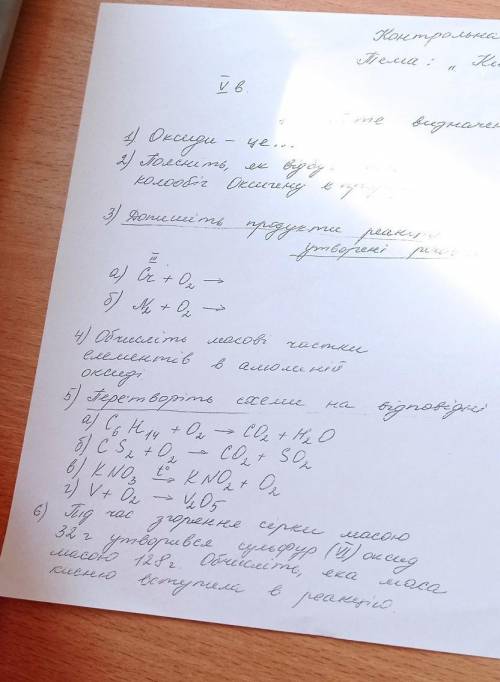 Контрольна
Тема: „
V в.
визначен
1) Оксиди – це...
2) Поясніть, як
колообіг Оксигену в
3) Допишіть продукти реакцій
утворені
III
а) Cr + O2 →
б) N2 + O2 →
4) Обчисліть масові частки
елементів в алюміній
оксиді.
5) Перетворіть схеми на відповідні
а) C6H14 + O2 → CO2 + H2O
б) CS2 + O2 → CO2 + SO2
в) KNO3 t°→ KNO2 + O2
г) V + O2 → V2O5
6) Під час згорення сірки масою
32 г утворився сульфур (VI) оксид
масою 128 г. Обчисліть, яка маса
кисню вступила в реакцію.